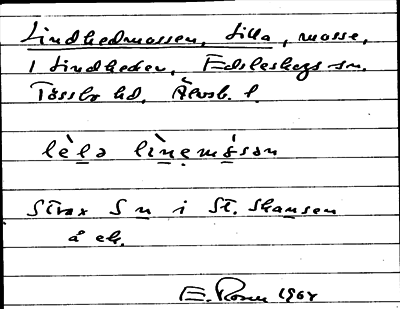 Lindhedmossen, Lilla, mosse,
i Lindheden, Edsleskogs sn.
Tössbo hd, Älvsb. l.
lèlə lìnemósən
Strax S n i St.
å ek.
E. 1964